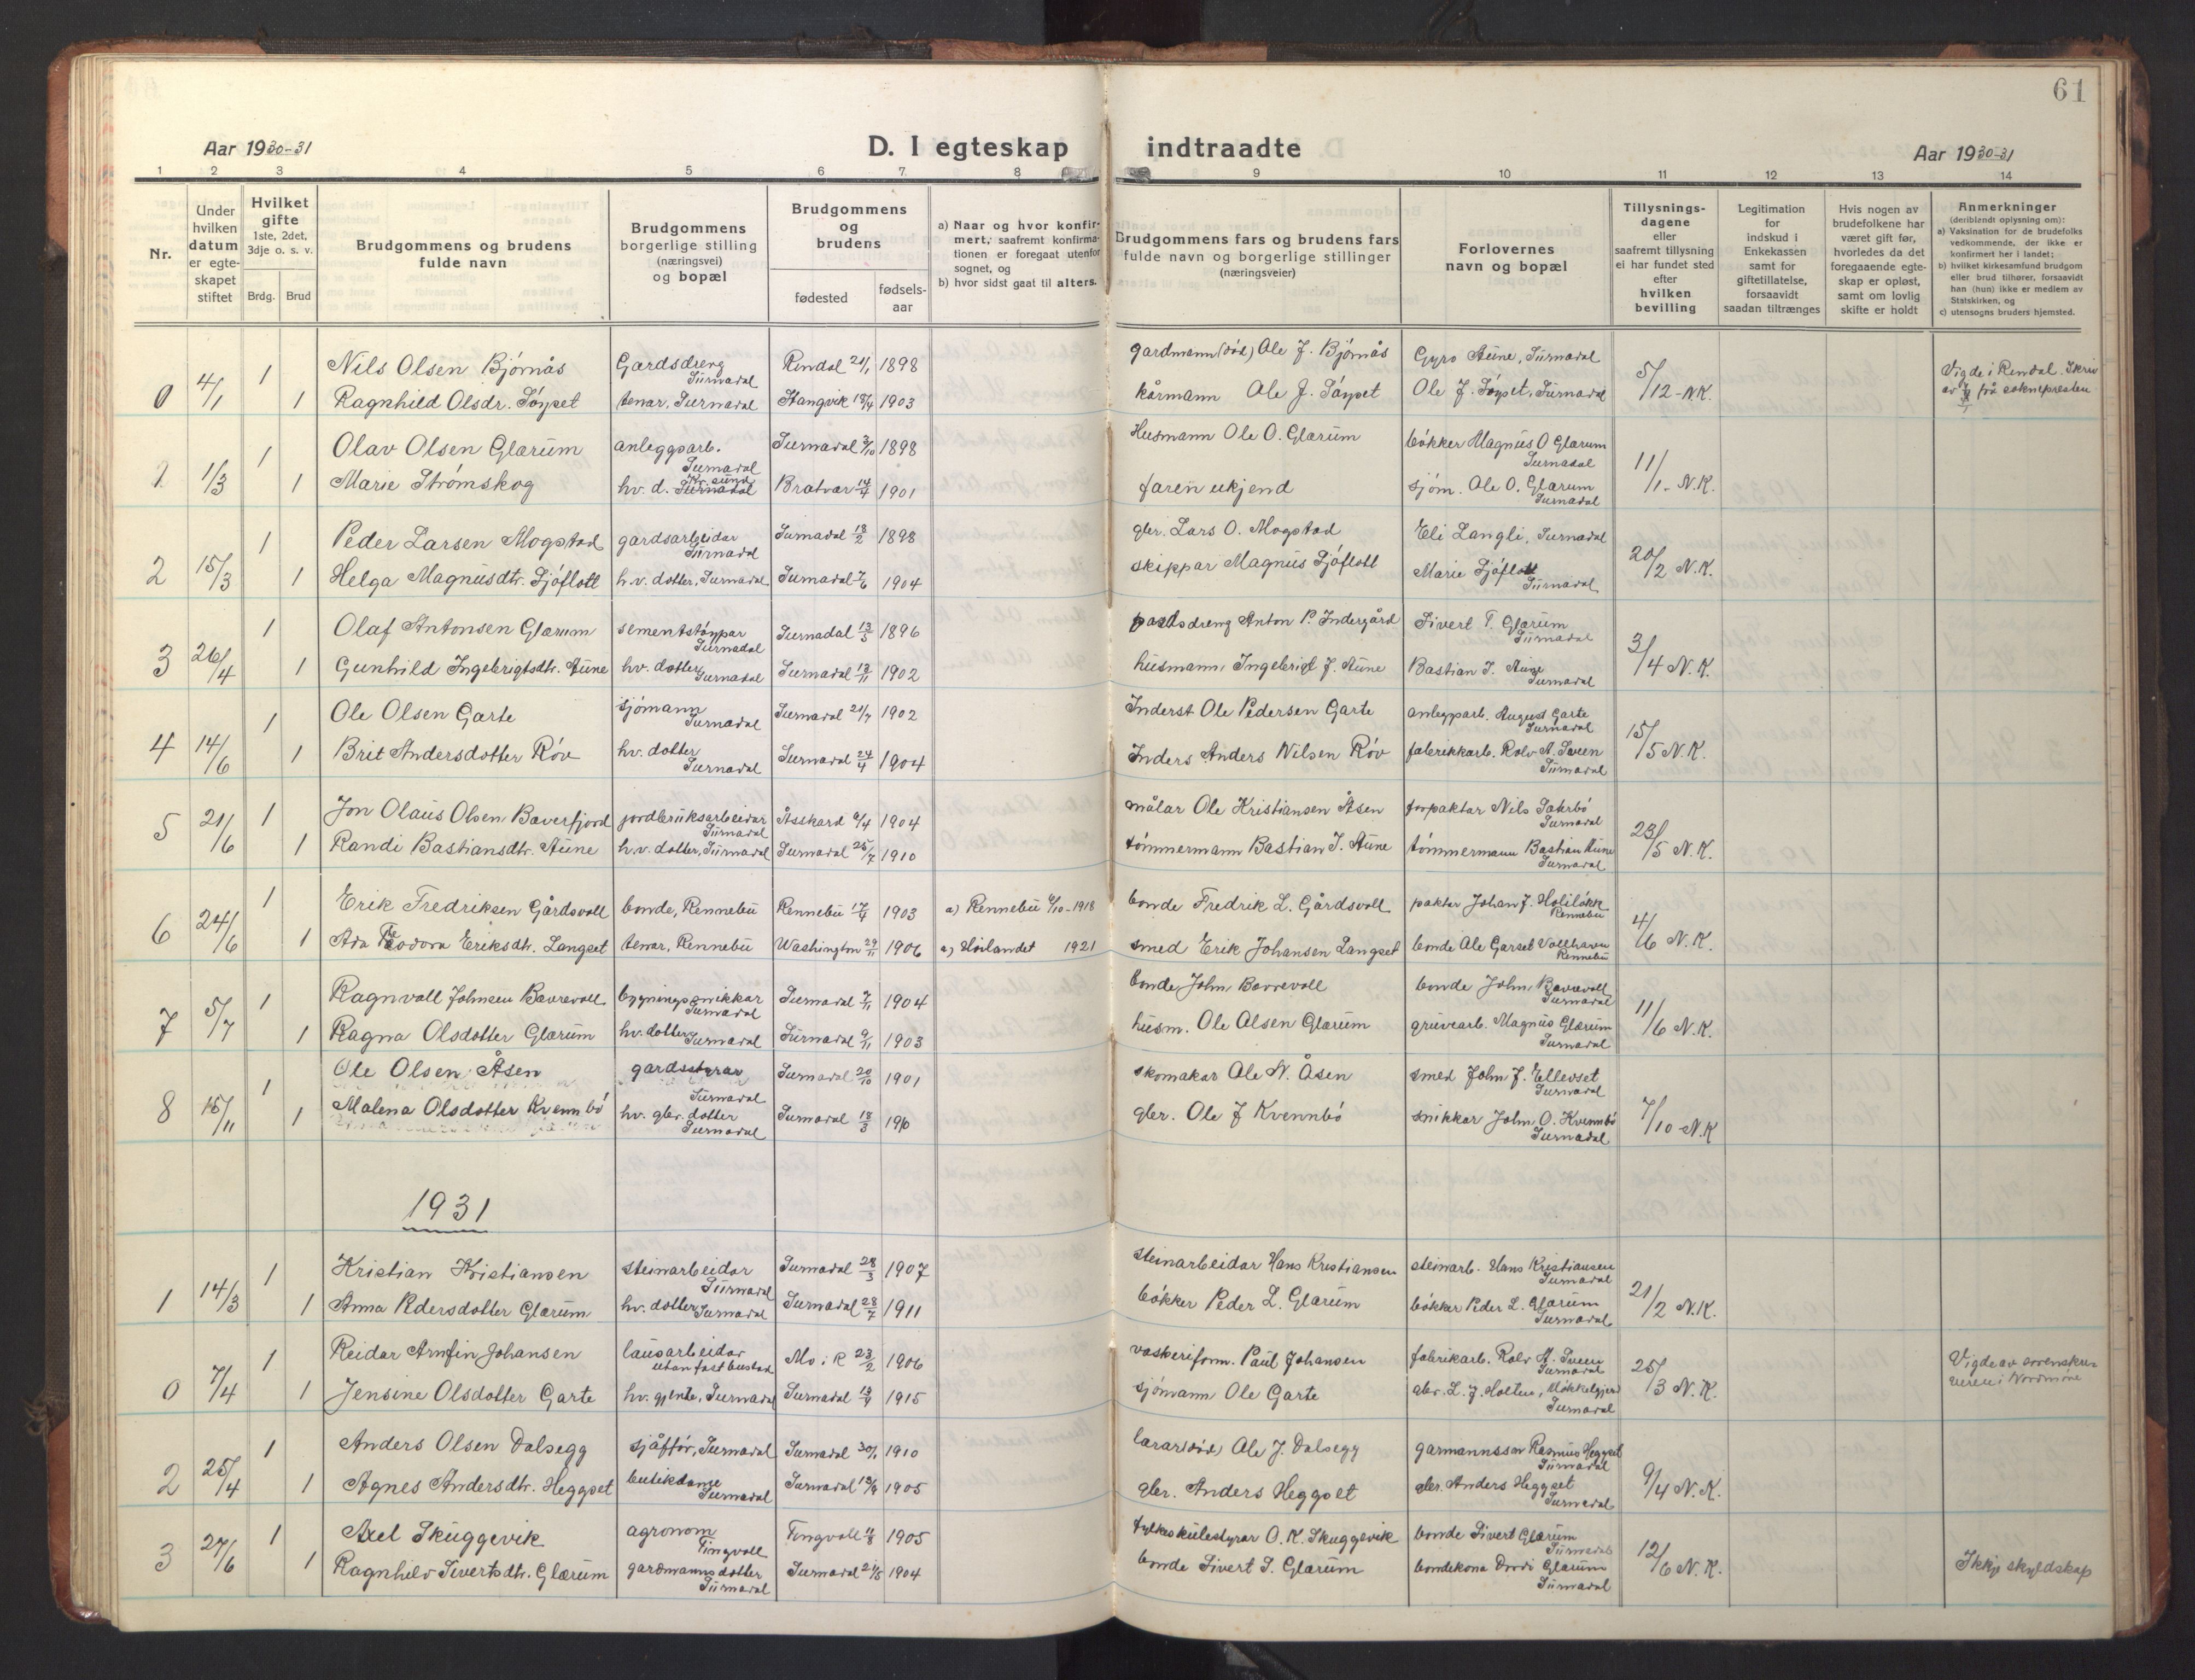 61
Aar 1930-31
D. I egteskap indtraadte
Aar 1930-31
1 2 3 4 5 6 7. 8 9 10 11 12 13 14
Nr.
Under hvilken datum er egteskapet stiftet
Hvilket gifte 1ste, 2det, 3dje o. s. v.
Brdg. Brud
Brudgommens og brudens fulde navn
Brudgommens borgerlige stilling (næringsvei) og bopæl
Brudgommens og brudens
fødested fødselsaar
a) Naar og hvor konfirmert, saafremt konfirmationen er foregaat utenfor sognet, og
b) hvor sidst gaat til alters.
Brudgommens fars og brudens fars fulde navn og borgerlige stillinger (næringsveier)
Forlovernes navn og bopæl
Tillysningsdagene eller saafremt tillysning ei har fundet sted efter hvilken bevilling
Legitimation for indskud i Enkekassen samt for giftetillatelse, forsaavidt saadan tiltrænges
Hvis nogen av brudefolkene har været gift før, hvorledes da det foregaaende egteskap er opløst, samt om lovlig skifte er holdt
Anmerkninger (deriblandt oplysning om):
a) Vaksination for de brudefolks vedkommende, der ikke er konfirmert her i landet;
b) hvilket kirkesamfund brudgom eller brud tilhører, forsaavidt han (hun) ikke er medlem av Statskirken, og
c) utensogns bruders hjemsted.
0 4/1 1 Nils Olsen Bjørnås Gardsdreng Surnadal Rindal 21/1 1898 gardmann (død) Ole J. Bjørnås Gyro Aune, Surnadal 5/12 - N.K. Vigde i Rindal. Skriv av frå soknepresten
1 Ragnhild Olsdr. Søyset tenar, Surnadal Stangvik 18/4 1903 kårmann Ole J. Søyset Ole J. Søyset, Surnadal
1 1/3 1 Olav Olsen Glærum anleggsarb. Surnadal Surnadal 3/10 1898 Husmann Ole O. Glærum bøkker Magnus O Glærum Surnadal 11/1 - N.K.
1 Marie Strømskog hv. d. Kr.sund Bratvær 14/4 1901 faren ukjend sjøm. Ole O. Glærum Surnadal
2 15/3 1 Peder Larsen Mogstad gardsarbeidar Surnadal Surnadal 13/2 1898 gbr. Lars O. Mogstad Eli Langli, Surnadal 20/2 N.K.
1 Helga Magnusdtr. Sjøflott h.v. dotter, Surnadal Surnadal 1904 skippar Magnus Sjøflott Marie Sjøflott Surnadal
3 26/4 1 Olaf Antonsen Glærum sementstøypar Surnadal Surnadal 13/5 1896 Anton P. Indergård Sivert T. Glærum Surnadal 3/4 N.K.
1 Gunhild Ingebrigtsdtr. Aune hv. dotter Surnadal Surnadal 13/11 1902 husmann Ingebrigt J. Aune Bastian I. Aune Surnadal
4 14/6 1 Ole Olsen Garte sjømann Surnadal Surnadal 21/7 1902 Inderst Ole Pedersen Garte anleggarb. August Garte Surnadal 15/5 N.K.
1 Brit Andersdotter Røv hv. dotter Surnadal Surnadal 24/4 1904 Inders Anders Nilsen Røv fabrikkarb. Rolv A. Sveen Surnadal
5 21/6 1 Jon Olaus Olsen Bæverfjord jordbruksarbeidar Surnadal Åsskard 6/4 1904 målar Ole Kristiansen Åsen forpaktar Nils Sæhrbø Surnadal 23/5 N.K.
1 Randi Bastiansdtr. Aune h.v. dotter, Surnadal Surnadal 25/7 1910 tømmermann Bastian I. Aune tømmermann Bastian Aune Surnadal
6 24/6 1 Erik Fredriksen Gårdsvoll bonde, Rennebu Rennebu 17/4 1903 a) Rennebu 6/10-1918 bonde Fredrik L. Gårdsvoll paktar Johan J. Holiløkk Rennebu 4/6 N.K.
1 Ada Theodora Eriksdtr. Langset tenar, Rennebu Washington 29/11 1906 a) Høilandet 1921 smed Erik Johansen Langset bonde Ole Garset Vollhavn Rennebu
7 5/7 1 Ragnvall Johnsen Bævrevoll bygningssnikkar Surnadal Surnadal 7/11 1904 bonde John Bævrevoll bonde John Bævrevoll Surnadal 11/6 N.K.
1 Ragna Olsdotter Glærum hv. dotter Surnadal Surnadal 9/11 1903 husm. Ole Olsen Glærum gruvearb. Magnus Glærum Surnadal
8 15/11 1 Ole Olsen Åsen gardsstyrar Surnadal Surnadal 20/10 1901 skomakar Ole N. Åsen smed John J. Ellevset Surnadal 7/10 - N.K
1 Malena Olsdotter Kvennbø hv. gbr. dotter Surnadal Surnadal 13/3 1910 gbr. Ole J Kvennbø snikkar John O. Kvennbø Surnadal
1931
1 14/3 1 Kristian Kristiansen steinarbeidar Surnadal Surnadal 28/3 1907 steinarbeidar Hans Kristiansen steinarb. Hans Kristiansen Surnadal 21/2 N.K.
1 Anna Pedersdotter Glærum hv. dotter Surnadal Surnadal 28/7 1911 bøkker Peder L. Glærum bøkker Peder L. Glærum Surnadal
0 7/4 1 Reidar Arnfin Johansen lausarbeidar utan fast bustad Mo i R 23/2 1906 vaskeriform. Paul Johansen fabrikarb. Rolv A. Sveen Surnadal 25/3 N.K. Vigde av sorenskrivaren i Nordmøre
1 Jensine Olsdotter Garte hv. gjente, Surnadal Surnadal 13/9 1915 sjømann Ole Garte gbr. L. J. Holten, Surnadal
2 25/4 1 Anders Olsen Dalsegg sjåfør, Surnadal Surnadal 30/1 1910 lærar (død) Ole J. Dalsegg garmannsson Rasmus Heggset Surnadal 9/4 N.K.
1 Agnes Andersdtr. Heggset butikdame Surnadal Surnadal 1905 gbr. Anders Heggset gbr. Anders Heggset Surnadal
3 27/6 1 Axel Skuggevik agronom Tingvoll Tingvoll 1905 fylkesskulestyrar O. K. Skuggevik bonde Sivert Glærum Surnadal 12/6 N.K.
1 Ragnhild Sivertsdtr. Glærum gardmannsdotter Surnadal Surnadal 21/5 1904 bonde Sivert S. Glærum bondekona Dordi Glærum Surnadal Ikkje skyldskap